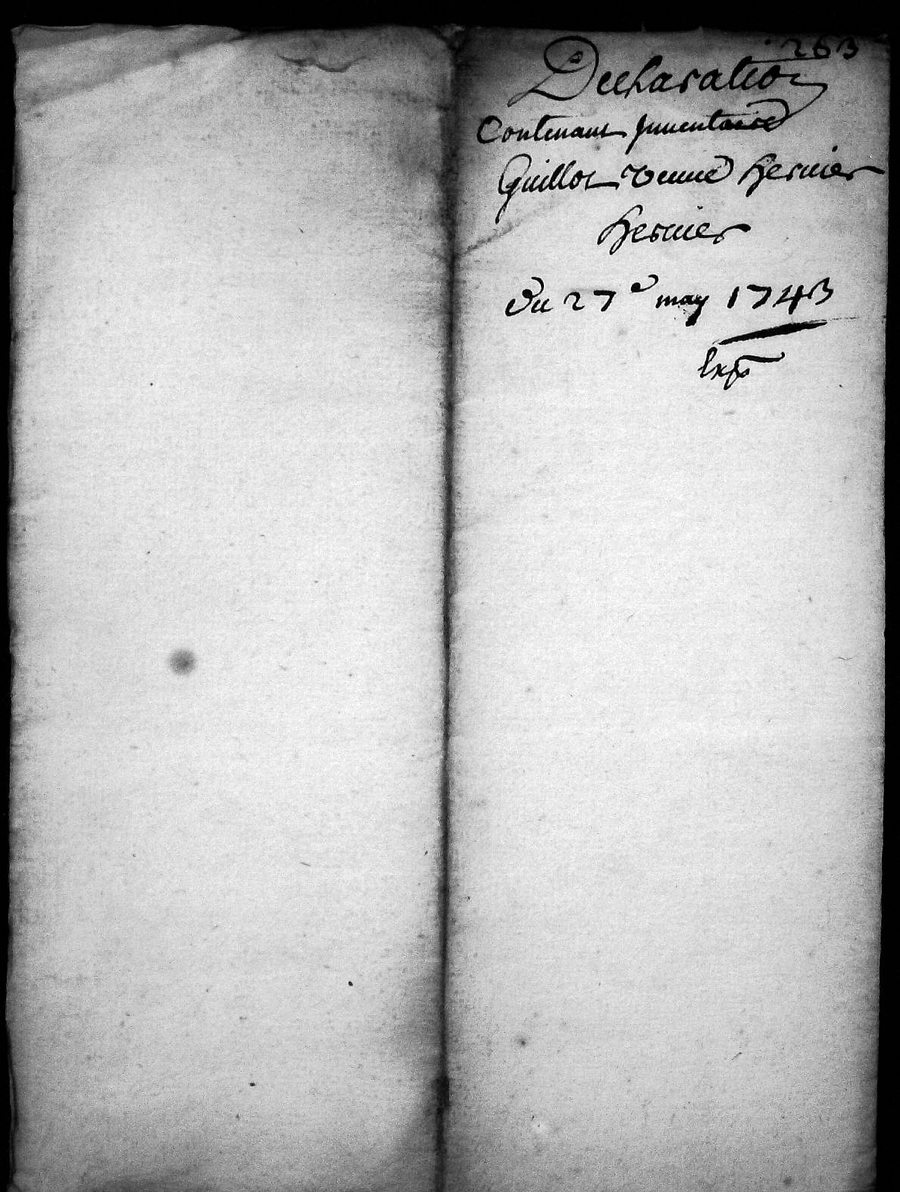 263
Declaration
Contenant Jnventaire
Guillot veuve Hernier
Hernier
Du 27e may 1743
Exp